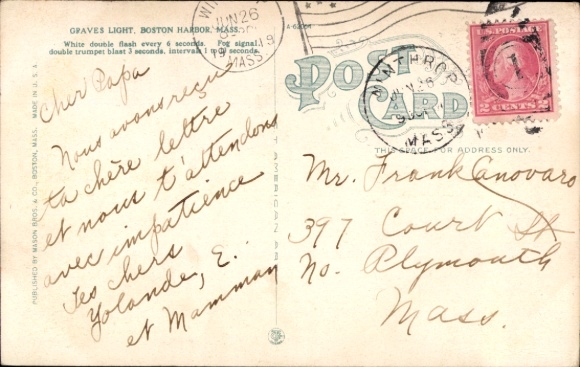 GRAVES LIGHT, BOSTON HARBOR, MASS.
White double flash every 6 seconds. Fog signal,
double trumpet blast 3 seconds, intervals 1 and 9 seconds.
JUN 26
MASS.
PUBLISHED BY MASON BROS. & CO., BOSTON, MASS. MADE IN U.S.A.
Cher Papa
Nous avons reçu
ta chère lettre
et nous t'attendons
avec impatience
Tes chers
Yolande, E.
et Mamman
POST CARD
WINTHROP
JUN 26
MASS.
2 CENTS 2
THIS SPACE FOR ADDRESS ONLY.
Mr. Frank Canovaro
397 Court St
No. Plymouth
Mass.